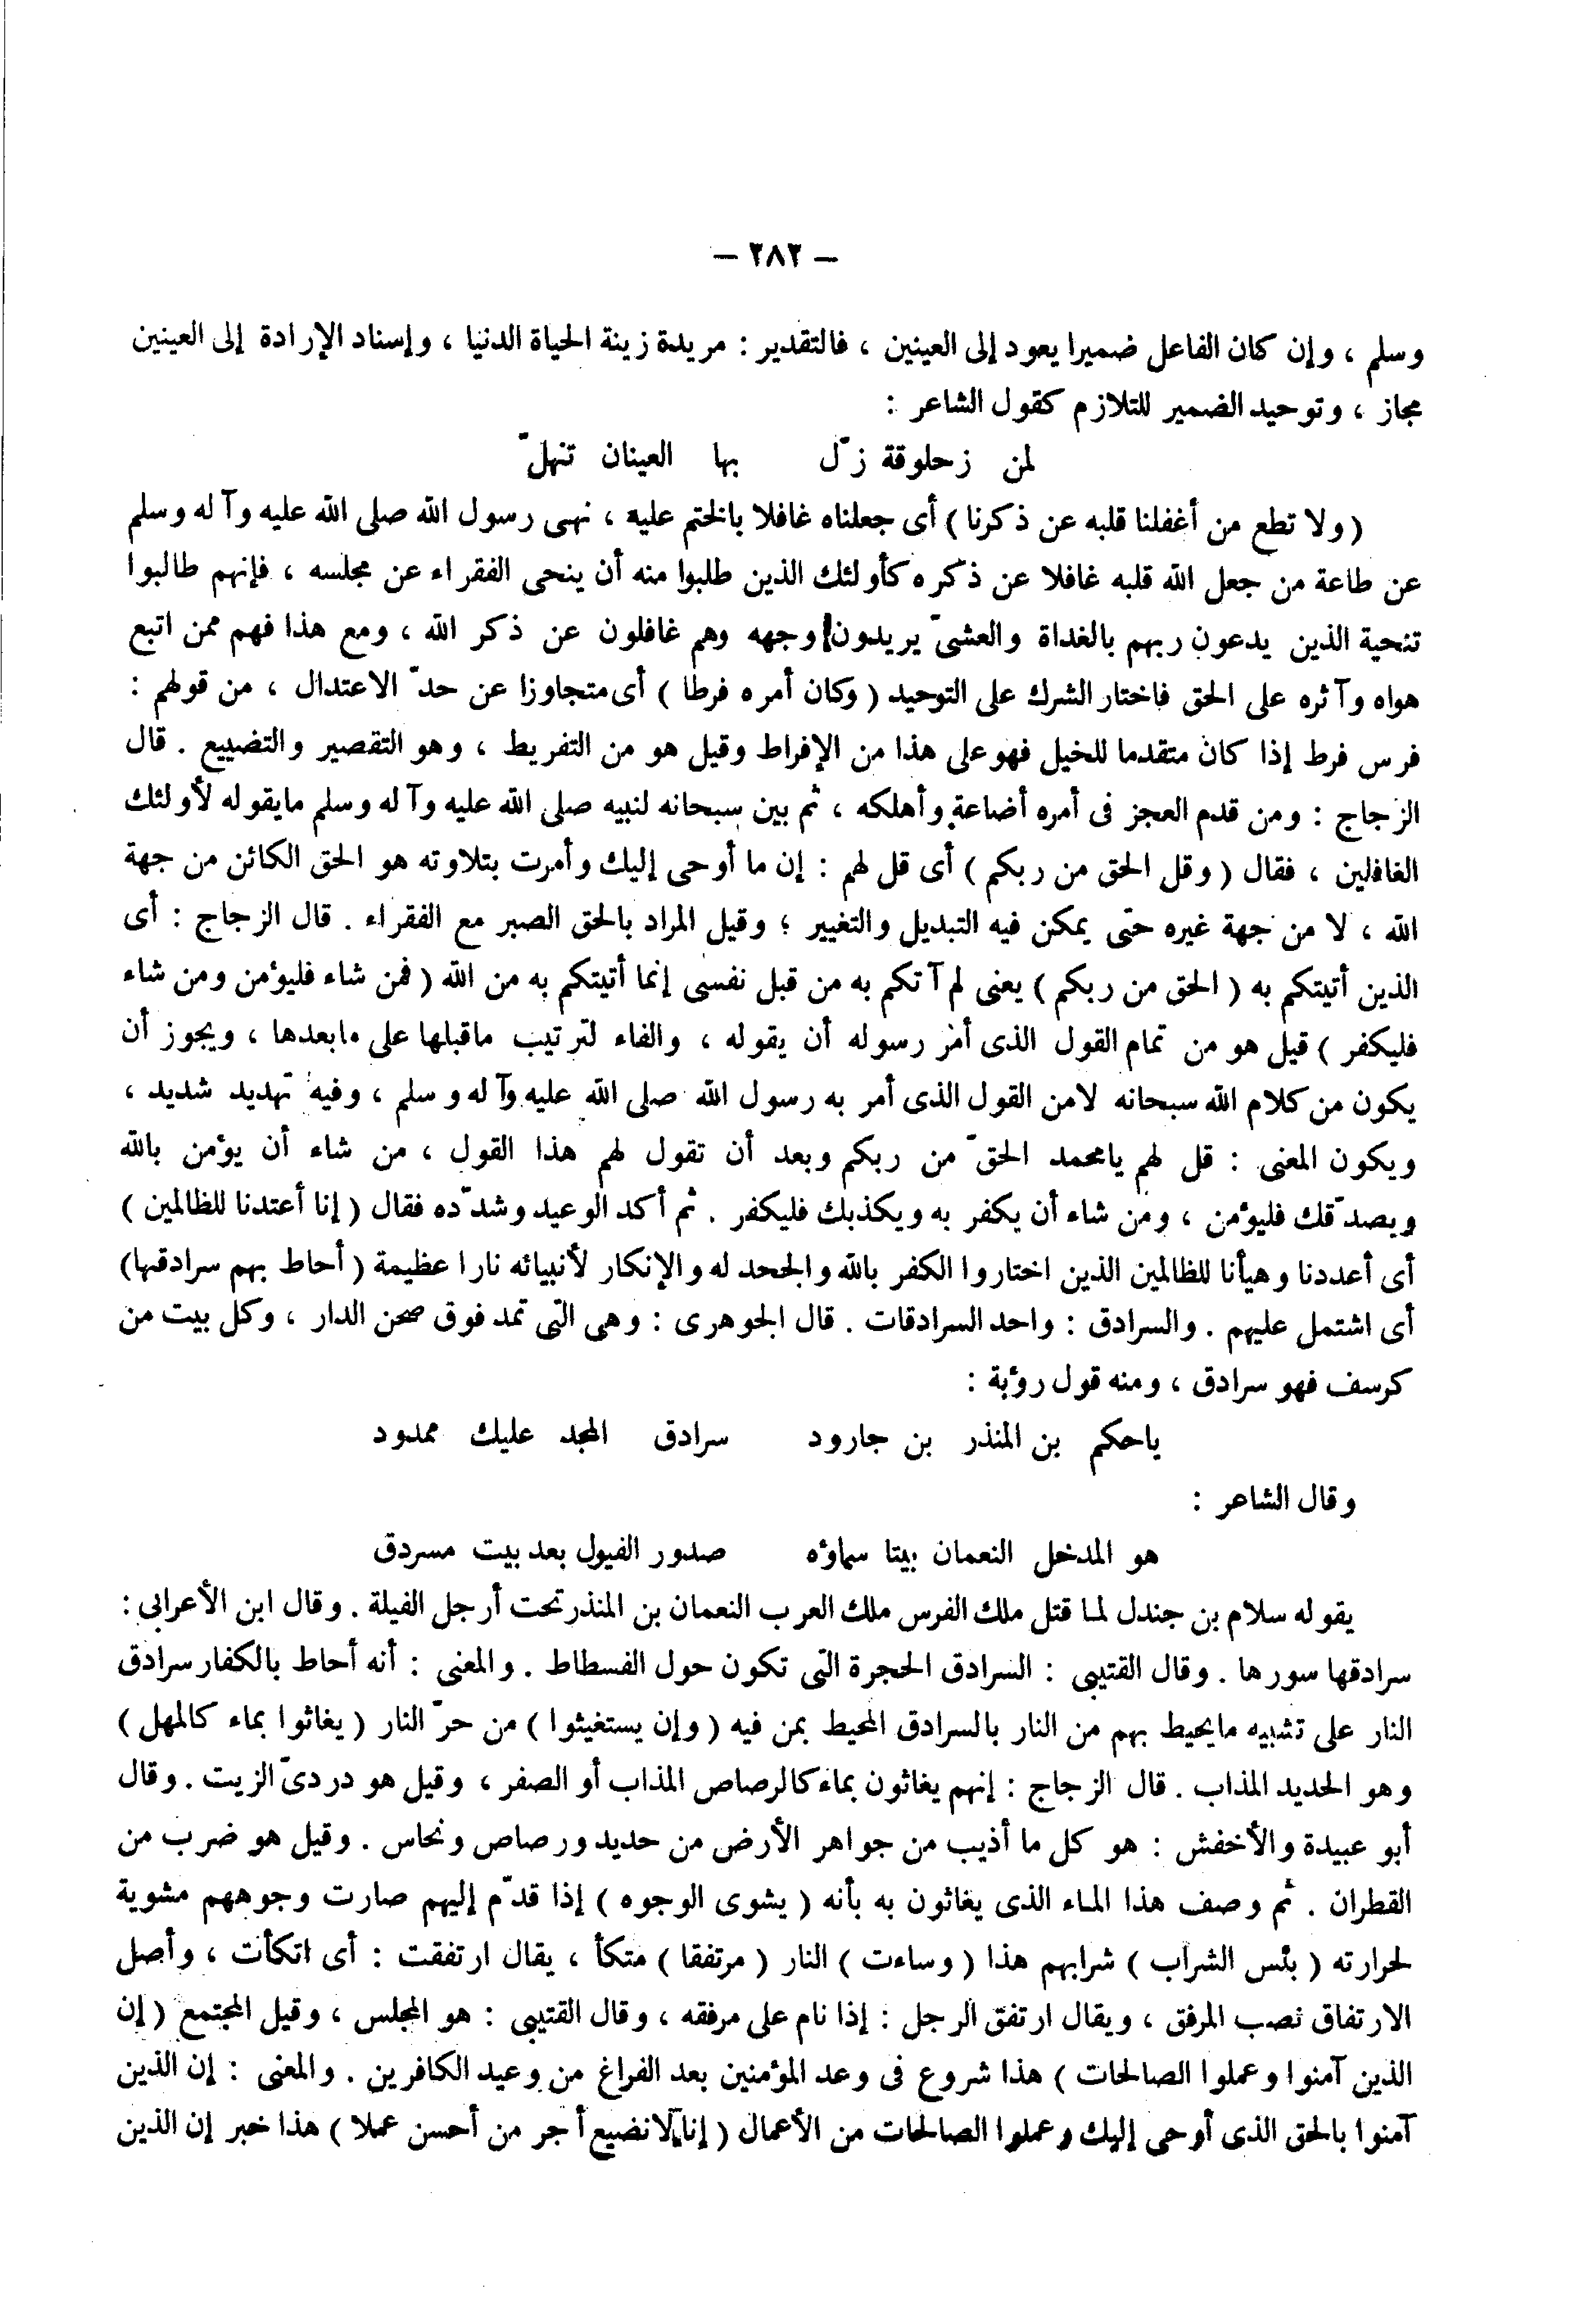 — ٢٨٢ —
وسلم ، وإن كان الفاعل ضميرا يعود إلى العينين ، فالتقدير : مريدة زينة الحياة الدنيا ، وإسناد الإرادة إلى العينين
مجاز ، وتوحيد الضمير للتلازم كقول الشاعر :
لمن زحلوقة زلّ بها العينان تنهلّ
( ولا تطع من أغفلنا قلبه عن ذكرنا ) أى جعلناه غافلا بالختم عليه ، نهى رسول الله صلى الله عليه وآله وسلم
عن طاعة من جعل الله قلبه غافلا عن ذكره كأولئك الذين طلبوا منه أن ينحى الفقراء عن مجلسه ، فإنهم طالبوا
تنحية الذين يدعون ربهم بالغداة والعشىّ يريدون وجهه وهم غافلون عن ذكر الله ، ومع هذا فهم ممن اتبع
هواه وآثره على الحق فاختار الشرك على التوحيد ( وكان أمره فرطا ) أى متجاوزا عن حدّ الاعتدال ، من قولهم :
فرس فرط إذا كان متقدما للخيل فهو على هذا من الإفراط وقيل هو من التفريط ، وهو التقصير والتضييع . قال
الزجاج : ومن قدم العجز فى أمره أضاعه وأهلكه ، ثم بين سبحانه لنبيه صلى الله عليه وآله وسلم مايقوله لأولئك
الغافلين ، فقال ( وقل الحق من ربكم ) أى قل لهم : إن ما أوحى إليك وأمرت بتلاوته هو الحق الكائن من جهة
الله ، لا من جهة غيره حتى يمكن فيه التبديل والتغيير ؛ وقيل المراد بالحق الصبر مع الفقراء . قال الزجاج : أى
الذين أتيتكم به ( الحق من ربكم ) يعنى لم آتكم به من قبل نفسى إنما أتيتكم به من الله ( فمن شاء فليؤمن ومن شاء
فليكفر ) قيل هو من تمام القول الذى أمر رسوله أن يقوله ، والفاء لترتيب ماقبلها على مابعدها ، ويجوز أن
يكون من كلام الله سبحانه لامن القول الذى أمر به رسول الله صلى الله عليه وآله وسلم ، وفيه تهديد شديد ،
ويكون المعنى : قل لهم يامحمد الحقّ من ربكم وبعد أن تقول لهم هذا القول ، من شاء أن يؤمن بالله
ويصدّقك فليؤمن ، ومن شاء أن يكفر به ويكذبك فليكفر . ثم أكد الوعيد وشدّده فقال ( إنا أعتدنا للظالمين )
أى أعددنا وهيأنا للظالمين الذين اختاروا الكفر بالله والجحد له والإنكار لأنبيائه نارا عظيمة ( أحاط بهم سرادقها)
أى اشتمل عليهم . والسرادق : واحد السرادقات . قال الجوهرى : وهى التى تمد فوق صحن الدار ، وكل بيت من
كرسف فهو سرادق ، ومنه قول رؤبة :
ياحكم بن المنذر بن جارود سرادق المجد عليك ممدود
وقال الشاعر :
هو المدخل النعمان بيتا سماؤه صدور الفيول بعد بيت مسردق
يقوله سلام بن جندل لما قتل ملك الفرس ملك العرب النعمان بن المنذر تحت أرجل الفيلة . وقال ابن الأعرابى :
سرادقها سورها . وقال القتيبى : السرادق الحجرة التى تكون حول الفسطاط . والمعنى : أنه أحاط بالكفار سرادق
النار على تشبيه مايحيط بهم من النار بالسرادق المحيط بمن فيه ( وإن يستغيثوا ) من حرّ النار ( يغاثوا بماء كالمهل )
وهو الحديد المذاب . قال الزجاج : إنهم يغاثون بماء كالرصاص المذاب أو الصفر ، وقيل هو دردىّ الزيت . وقال
أبو عبيدة والأخفش : هو كل ما أذيب من جواهر الأرض من حديد ورصاص ونحاس . وقيل هو ضرب من
القطران . ثم وصف هذا الماء الذى يغاثون به بأنه ( يشوى الوجوه ) إذا قدّم إليهم صارت وجوههم مشوية
لحرارته ( بئس الشراب ) شرابهم هذا ( وساءت ) النار ( مرتفقا ) متكأ ، يقال ارتفقت : أى اتكأت ، وأصل
الارتفاق نصب المرفق ، ويقال ارتفق الرجل : إذا نام على مرفقه ، وقال القتيبى : هو المجلس ، وقيل المجتمع ( إن
الذين آمنوا وعملوا الصالحات ) هذا شروع فى وعد المؤمنين بعد الفراغ من وعيد الكافرين . والمعنى : إن الذين
آمنوا بالحق الذى أوحى إليك وعملوا الصالحات من الأعمال ( إنا لانضيع أجر من أحسن عملا ) هذا خبر إن الذين